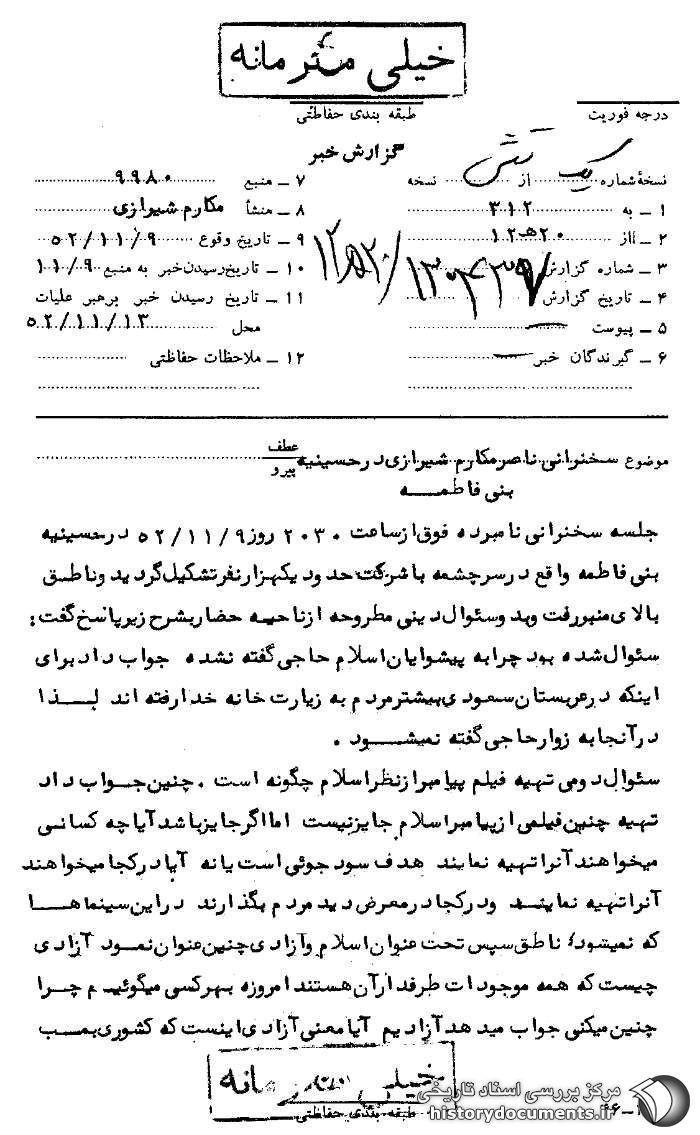 خیلی محرمانه
درجه فوریت
طبقه بندی حفاظتی
گزارش خبر
نسخهٔ شماره یک از شش نسخه
۱ ـ به ۳۱۲
۲ ـ از ۲۰هـ۱۲
۳ ـ شماره گزارش
۴ ـ تاریخ گزارش
۵ ـ پیوست
۶ ـ گیرندگان خبر
۷ ـ منبع ۹۹۸۰
۸ ـ منشأ مکارم شیرازی
۹ ـ تاریخ وقوع ۵۲/۱۱/۹
۱۰ ـ تاریخ رسیدن خبر به منبع ۱۱/۹
۱۱ ـ تاریخ رسیدن خبر برهبر عملیات
محل ۵۲/۱۱/۱۳
۱۲ ـ ملاحظات حفاظتی
موضوع سخنرانی ناصر مکارم شیرازی در حسینیه
بنی فاطمه
عطف
پیرو
جلسه سخنرانی نامبرده فوق از ساعت ۲۰۳۰ روز ۵۲/۱۱/۹ در حسینیه
بنی فاطمه واقع در سرچشمه با شرکت حدود یکهزار نفر تشکیل گردید و ناطق
بالای منبر رفت و بدو سئوال دینی مطروحه از ناحیه حضار بشرح زیر پاسخ گفت :
سئوال شده بود چرا به پیشوایان اسلام حاجی گفته نشده جواب داد برای
اینکه در عربستان سعودی بیشتر مردم به زیارت خانه خدا رفته اند لذا
در آنجا به زوار حاجی گفته نمیشود .
سئوال دومی تهیه فیلم پیامبر از نظر اسلام چگونه است . چنین جواب داد
تهیه چنین فیلمی از پیامبر اسلام جایز نیست اما اگر جایز باشد آیا چه کسانی
میخواهند آنرا تهیه نمایند هدف سود جوئی است یا نه آیا در کجا میخواهند
آنرا تهیه نمایند و در کجا در معرض دید مردم بگذارند در این سینما ها
که نمیشود، ناطق سپس تحت عنوان اسلام و آزادی چنین عنوان نمود آزادی
چیست که همه موجودات طرفدار آن هستند امروزه بهر کسی میگوئیم چرا
چنین میکنی جواب میدهد آزادیم آیا معنی آزادی اینست که کشوری بمب
خیلی محرمانه
طبقه بندی حفاظتی
مرکز بررسی اسناد تاریخی
historydocuments.ir